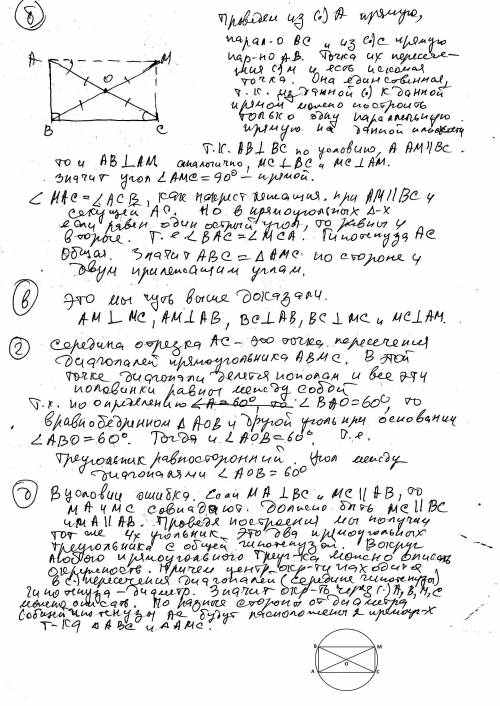 б
Проведем из (·) A прямую,
парал-о BC и из (·) C прямую
пар-но AB. Точка их пересече-
ния (·) M и есть искомая
точка. Она единственная,
т.к. из данной (·) к данной
прямой можно построить
только одну параллельную
прямую на данной плоскости
A M
O
B C
Т.К. AB⊥BC по условию, А AM∥BC
то и AB⊥AM аналогично, MC⊥BC и MC⊥AM.
Значит угол ∠AMC=90° – прямой.
∠MAC=∠ACB, как накрест лежащия при AM∥BC и
секущей AC. Но в прямоугольных Δ-х
если равен один острый угол, то равны и
вторые. Т.е ∠BAC=∠MCA. Гипотенуза AC
общая. Значит ABC=ΔAMC по стороне и
двум прилежащим углам.
в
Это мы чуть выше доказали.
AM⊥MC, AM⊥AB, BC⊥AB, BC⊥MC и MC⊥AM.
2
Середина отрезка AC – это точка пересечения
диагоналей прямоугольника ABMC. В этой
точке диагонали делятся пополам и все эти
половинки равны между собой
Т.к. по определению ∠A=60°, то ∠BAO=60°, то
в равнобедренном ΔAOB и другой угол при основании
∠ABO=60°. Тогда и ∠AOB=60°. Т.е.
треугольник равносторонний. Угол между
диагоналями ∠AOB=60°
В условии ошибка. Если MA⊥BC и MC∥AB, то
MA и MC совпадают. Должно быть MC∥BC
и MA∥AB. Проведя построения мы получим
тот же 4х угольник. Это два прямоугольных
треугольника с общей гипотенузой. Вокруг
любого прямоугольного треуг-ка можно описать
окружность. Причем центр окр-ти находится
в (·) пересечения диагоналей (середине гипотенузы)
Гипотенуза – диаметр. Значит окр-ть через (·) A, B, M, C
можно описать. По разные стороны от диаметра
AC будут расположены 2 прямоуг-х
т-ка ΔABC и ΔAMC.
B M
O
A C